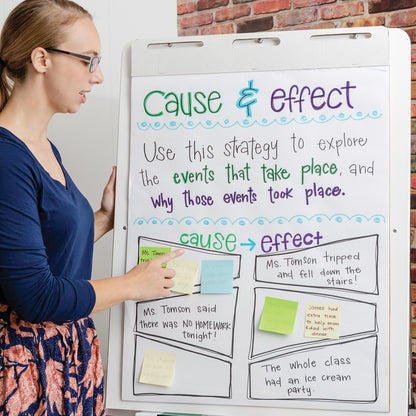 Cause & Effect
Use this strategy to explore
the events that take place, and
why those events took place.
cause → effect
Ms. Tomson
Ms. Tomson
Ms. Tomson tripped
and fell down the
stairs!
Ms. Tomson said
there was NO HOMEWORK
tonight!
James had
extra time
to help
with
dinner.
The whole class
had an ice cream
party.